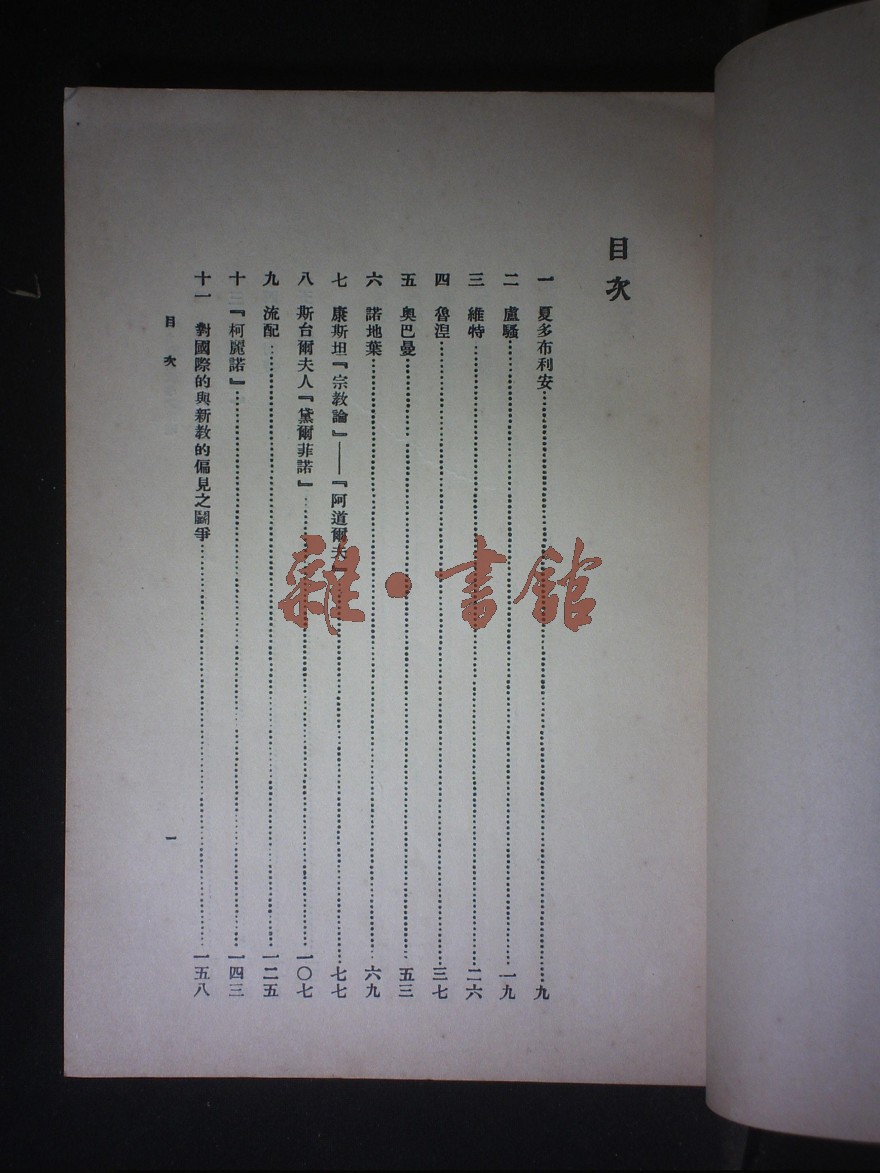 目次
一 夏多布利安⋯⋯九
二 盧騷⋯⋯一九
三 維特⋯⋯二六
四 魯涅⋯⋯三七
五 奧巴曼⋯⋯五三
六 諾地葉⋯⋯六九
七 康斯坦『宗教論』——『阿道爾夫』⋯⋯七七
八 斯台爾夫人『黛爾菲諾』⋯⋯一〇七
九 流配⋯⋯一二五
十 『柯麗諾』⋯⋯一四三
十一 對國際的與新教的偏見之鬪爭⋯⋯一五八
目次 一
雜·書館